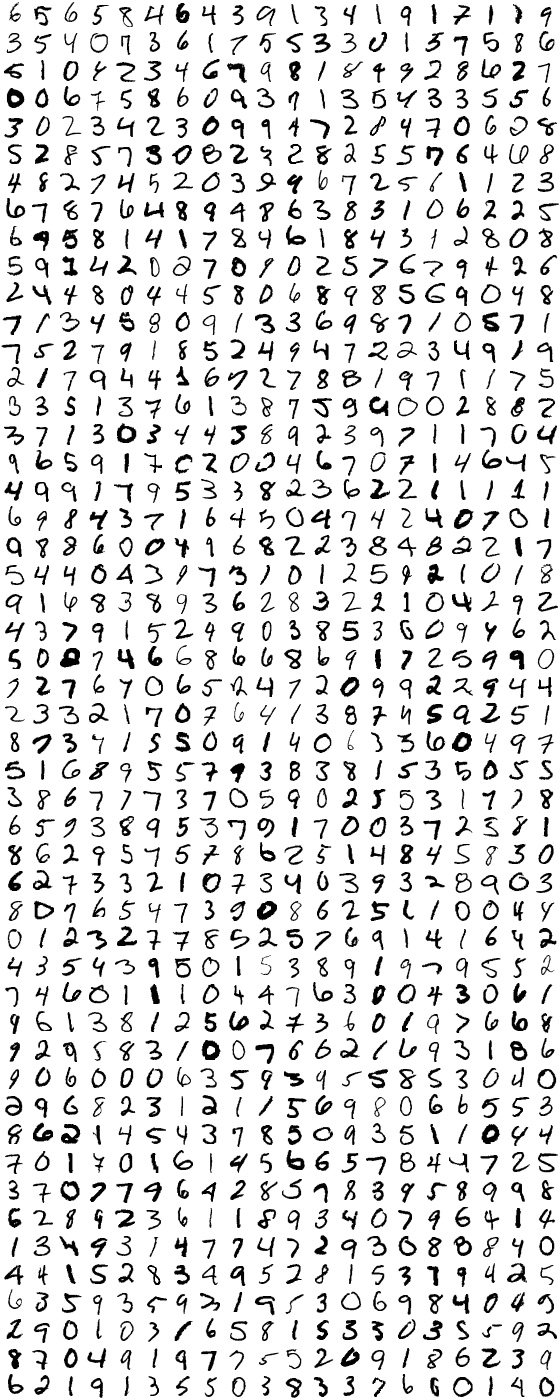 6 5 6 5 8 4 6 4 3 9 1 3 4 1 9 1 7 1 1 9
3 5 4 0 7 3 6 1 7 5 5 3 3 0 1 5 7 5 8 6
5 1 0 4 2 3 4 6 7 9 8 1 8 4 9 2 8 6 2 7
0 0 6 7 5 8 6 0 9 3 7 1 3 5 4 3 3 5 5 6
3 0 2 3 4 2 3 0 9 9 4 7 2 8 4 7 0 6 2 8
5 2 8 5 7 3 0 8 2 3 2 8 2 5 5 7 6 4 6 8
4 8 2 7 4 5 2 0 3 9 9 6 7 2 5 6 1 1 2 3
6 7 8 7 6 4 8 9 4 8 6 3 8 3 1 0 6 2 2 5
6 9 5 8 1 4 1 7 8 4 6 1 8 4 3 1 2 8 0 8
5 9 1 4 2 0 2 7 0 9 0 2 5 7 6 7 9 4 2 6
2 4 4 8 0 4 4 5 8 0 6 8 9 8 5 6 9 0 4 8
7 1 3 4 5 8 0 9 1 3 3 6 9 8 7 1 0 5 7 1
7 5 2 7 9 1 8 5 2 4 9 4 7 2 2 3 4 9 1 9
2 1 7 9 4 4 1 6 7 2 7 8 8 1 9 7 1 1 7 5
3 3 5 1 3 7 6 1 3 8 7 5 9 9 0 0 2 8 8 2
3 7 1 3 0 3 4 4 5 8 9 2 3 9 7 1 1 7 0 4
9 6 5 9 1 7 0 2 0 0 4 6 7 0 7 1 4 6 4 5
4 9 9 1 7 9 5 3 3 8 2 3 6 2 2 1 1 1 1 1
6 9 8 4 3 7 1 6 4 5 0 4 7 4 2 4 0 7 0 1
9 8 8 6 0 0 4 9 6 8 2 2 3 8 4 8 2 2 1 7
5 4 4 0 4 3 9 7 3 1 0 1 2 5 9 2 1 0 1 8
9 1 6 8 3 8 9 3 6 2 8 3 2 2 1 0 4 2 9 2
4 3 7 9 1 5 2 4 9 0 3 8 5 3 6 0 9 4 6 2
5 0 2 7 4 6 6 8 6 6 8 6 9 1 7 2 5 9 9 0
7 2 7 6 7 0 6 5 2 4 7 2 0 9 9 2 2 9 4 4
2 3 3 2 1 7 0 7 6 4 1 3 8 7 4 5 9 2 5 1
8 7 3 7 1 5 5 0 9 1 4 0 6 3 3 6 0 4 9 7
5 1 6 8 9 5 5 7 9 3 8 3 8 1 5 3 5 0 5 5
3 8 6 7 7 7 3 7 0 5 9 0 2 5 5 3 1 7 7 8
6 5 9 3 8 9 5 3 7 9 1 7 0 0 3 7 2 3 8 1
8 6 2 9 5 7 5 7 8 6 2 5 1 4 8 4 5 8 3 0
6 2 7 3 3 2 1 0 7 3 4 0 3 9 3 2 8 9 0 3
8 0 7 6 5 4 7 3 9 0 8 6 2 5 6 1 0 0 4 4
0 1 2 3 2 7 7 8 5 2 5 7 6 9 1 4 1 6 4 2
4 3 5 4 3 9 5 0 1 5 3 8 9 1 9 7 9 5 5 2
7 4 6 0 1 1 1 0 4 4 7 6 3 0 0 4 3 0 6 1
9 6 1 3 8 1 2 5 6 2 7 3 6 0 1 9 7 6 6 8
9 2 9 5 8 3 1 0 0 7 6 6 2 1 6 9 3 1 8 6
9 0 6 0 0 0 6 3 5 9 3 9 5 5 8 5 3 0 4 0
2 9 6 8 2 3 1 2 1 1 5 6 9 8 0 6 6 5 5 3
8 6 2 1 4 5 4 3 7 8 5 0 9 3 5 1 1 0 4 4
7 0 1 7 0 1 6 1 4 5 6 6 5 7 8 4 4 7 2 5
3 7 0 7 7 9 6 4 2 8 5 7 8 3 9 5 8 9 9 8
6 2 8 9 2 3 6 1 1 8 9 3 4 0 7 9 6 4 1 4
1 3 4 9 3 1 4 7 7 4 7 2 9 3 0 8 8 8 4 0
4 4 1 5 2 8 3 4 9 5 2 8 1 5 3 7 9 4 2 5
6 3 5 9 3 5 9 2 1 9 5 3 0 6 9 8 4 0 4 5
2 9 0 1 0 3 1 6 5 8 1 5 3 3 0 3 5 5 9 2
8 7 0 4 9 1 9 7 7 5 5 2 0 9 1 8 6 2 3 9
6 2 1 9 1 3 5 5 0 3 8 3 3 7 6 6 0 1 4 0